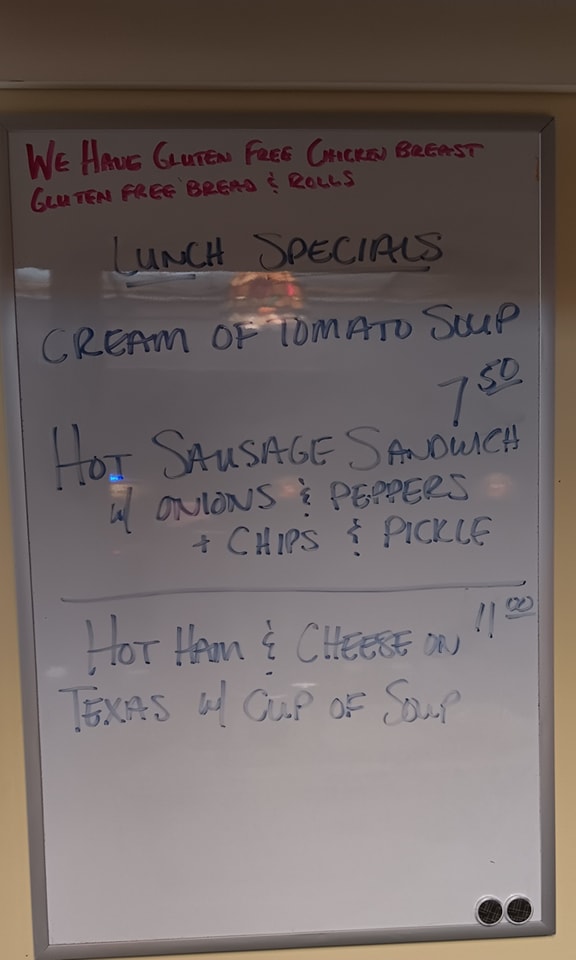 WE HAVE GLUTEN FREE CHICKEN BREAST
GLUTEN FREE BREAD & ROLLS
LUNCH SPECIALS
CREAM OF TOMATO SOUP
7 50
HOT SAUSAGE SANDWICH
w/ ONIONS & PEPPERS
+ CHIPS & PICKLE
11 00
HOT HAM & CHEESE ON
TEXAS w/ CUP OF SOUP